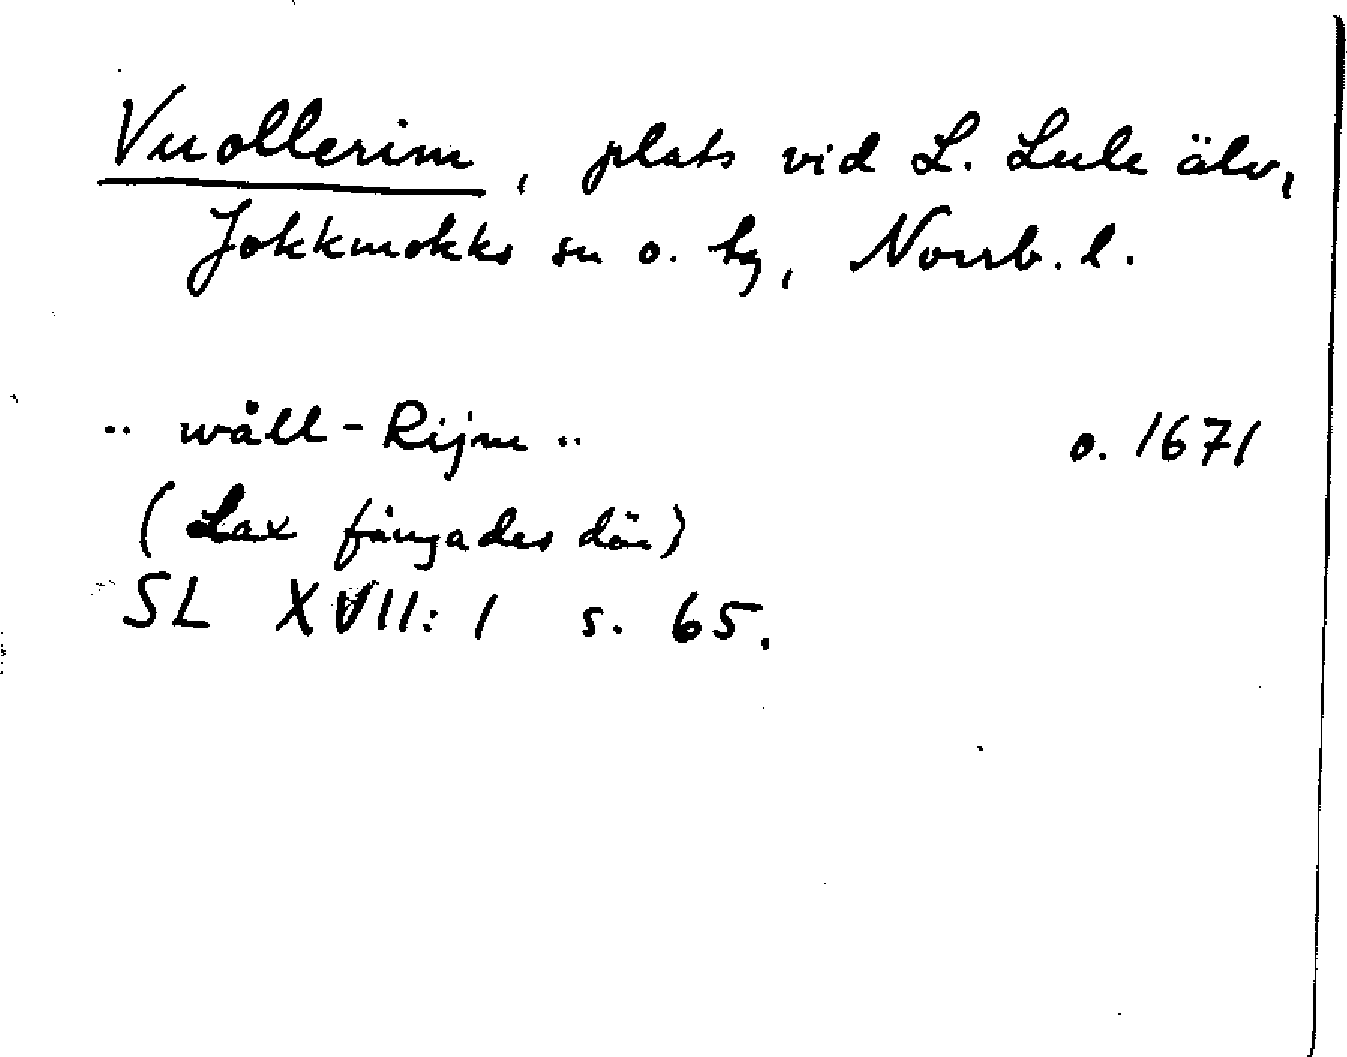 Vuollerim, plats vid L. Lule älv,
Jokkmokks sn o. tg, Norrb. l.
.. wåll-Rijm .. o. 1671
(Lax fångades där)
SL XVII: 1 s. 65.